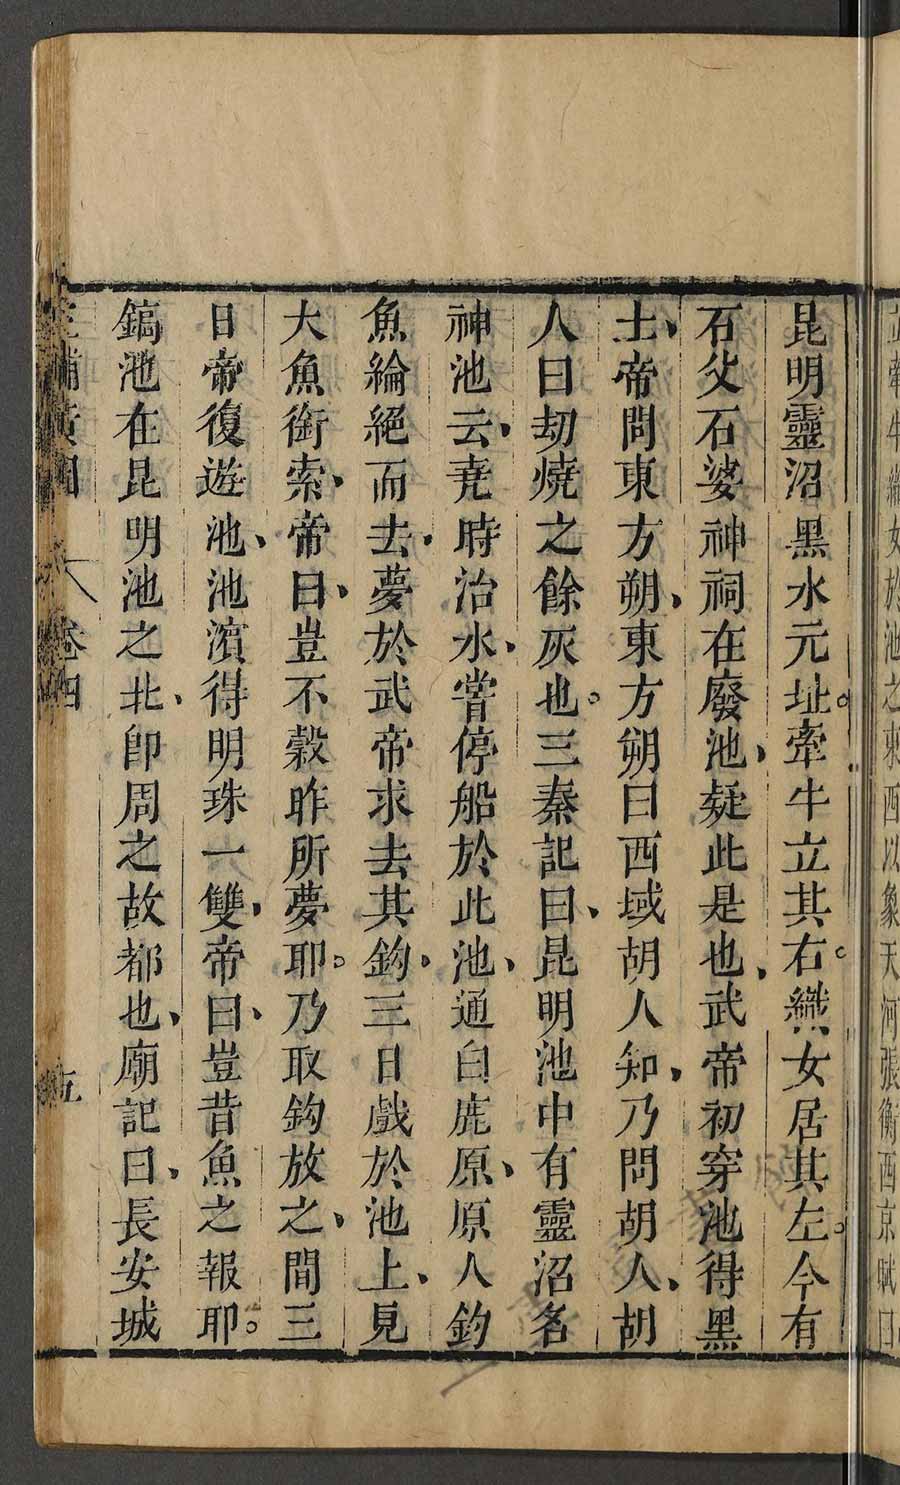 昆明靈沼黑水元址。牽牛立其右。織女居其左。今有
石父石婆神祠在廢池、疑此是也、武帝初穿池得黑
土、帝問東方朔、東方朔曰西域胡人知、乃問胡人、胡
人曰劫燒之餘灰也。三秦記曰、昆明池中有靈沼名
神池云、堯時治水、嘗停船於此池、通白鹿原、原人釣
魚綸絕而去、夢於武帝求去其鈎、三日戲於池上、見
大魚銜索、帝曰、豈不穀昨所夢耶。乃取鈎放之、間三
日帝復遊池、池濱得明珠一雙、帝曰、豈昔魚之報耶。
鎬池在昆明池之北、卽周之故都也、廟記曰、長安城
三輔黃圖 卷四 五